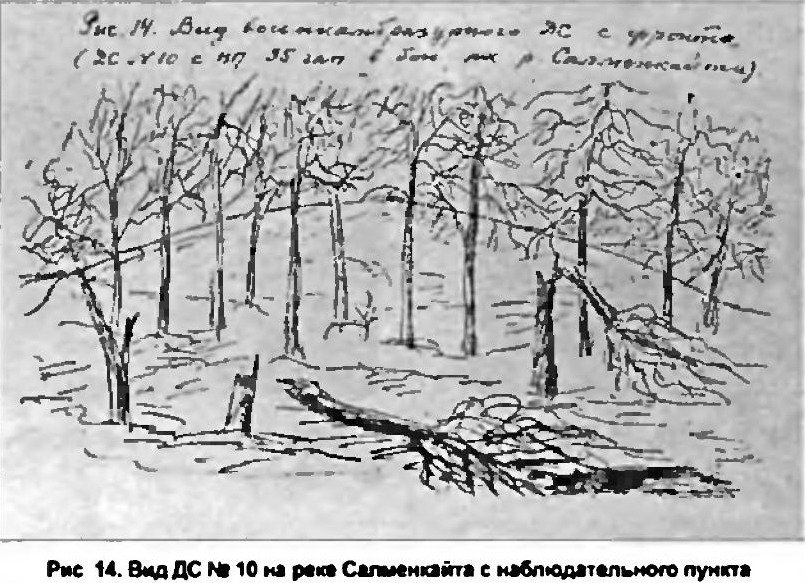 Рис. 14. Вид восьмиамбразурного ДС с фронта
(ДС №10 с НП 35 гап в бою на р. Салменкайта)
Рис 14. Вид ДС № 10 на реке Салменкайта с наблюдательного пункта